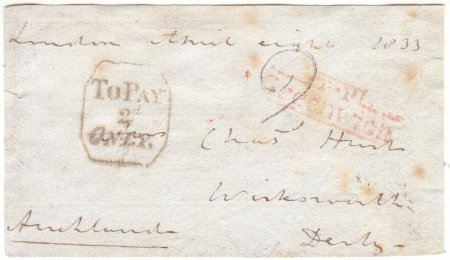 London April eight 1833
To PAY
2d
ONLY.
2
Chas Hurt
Wirksworth
Derby
Auckland